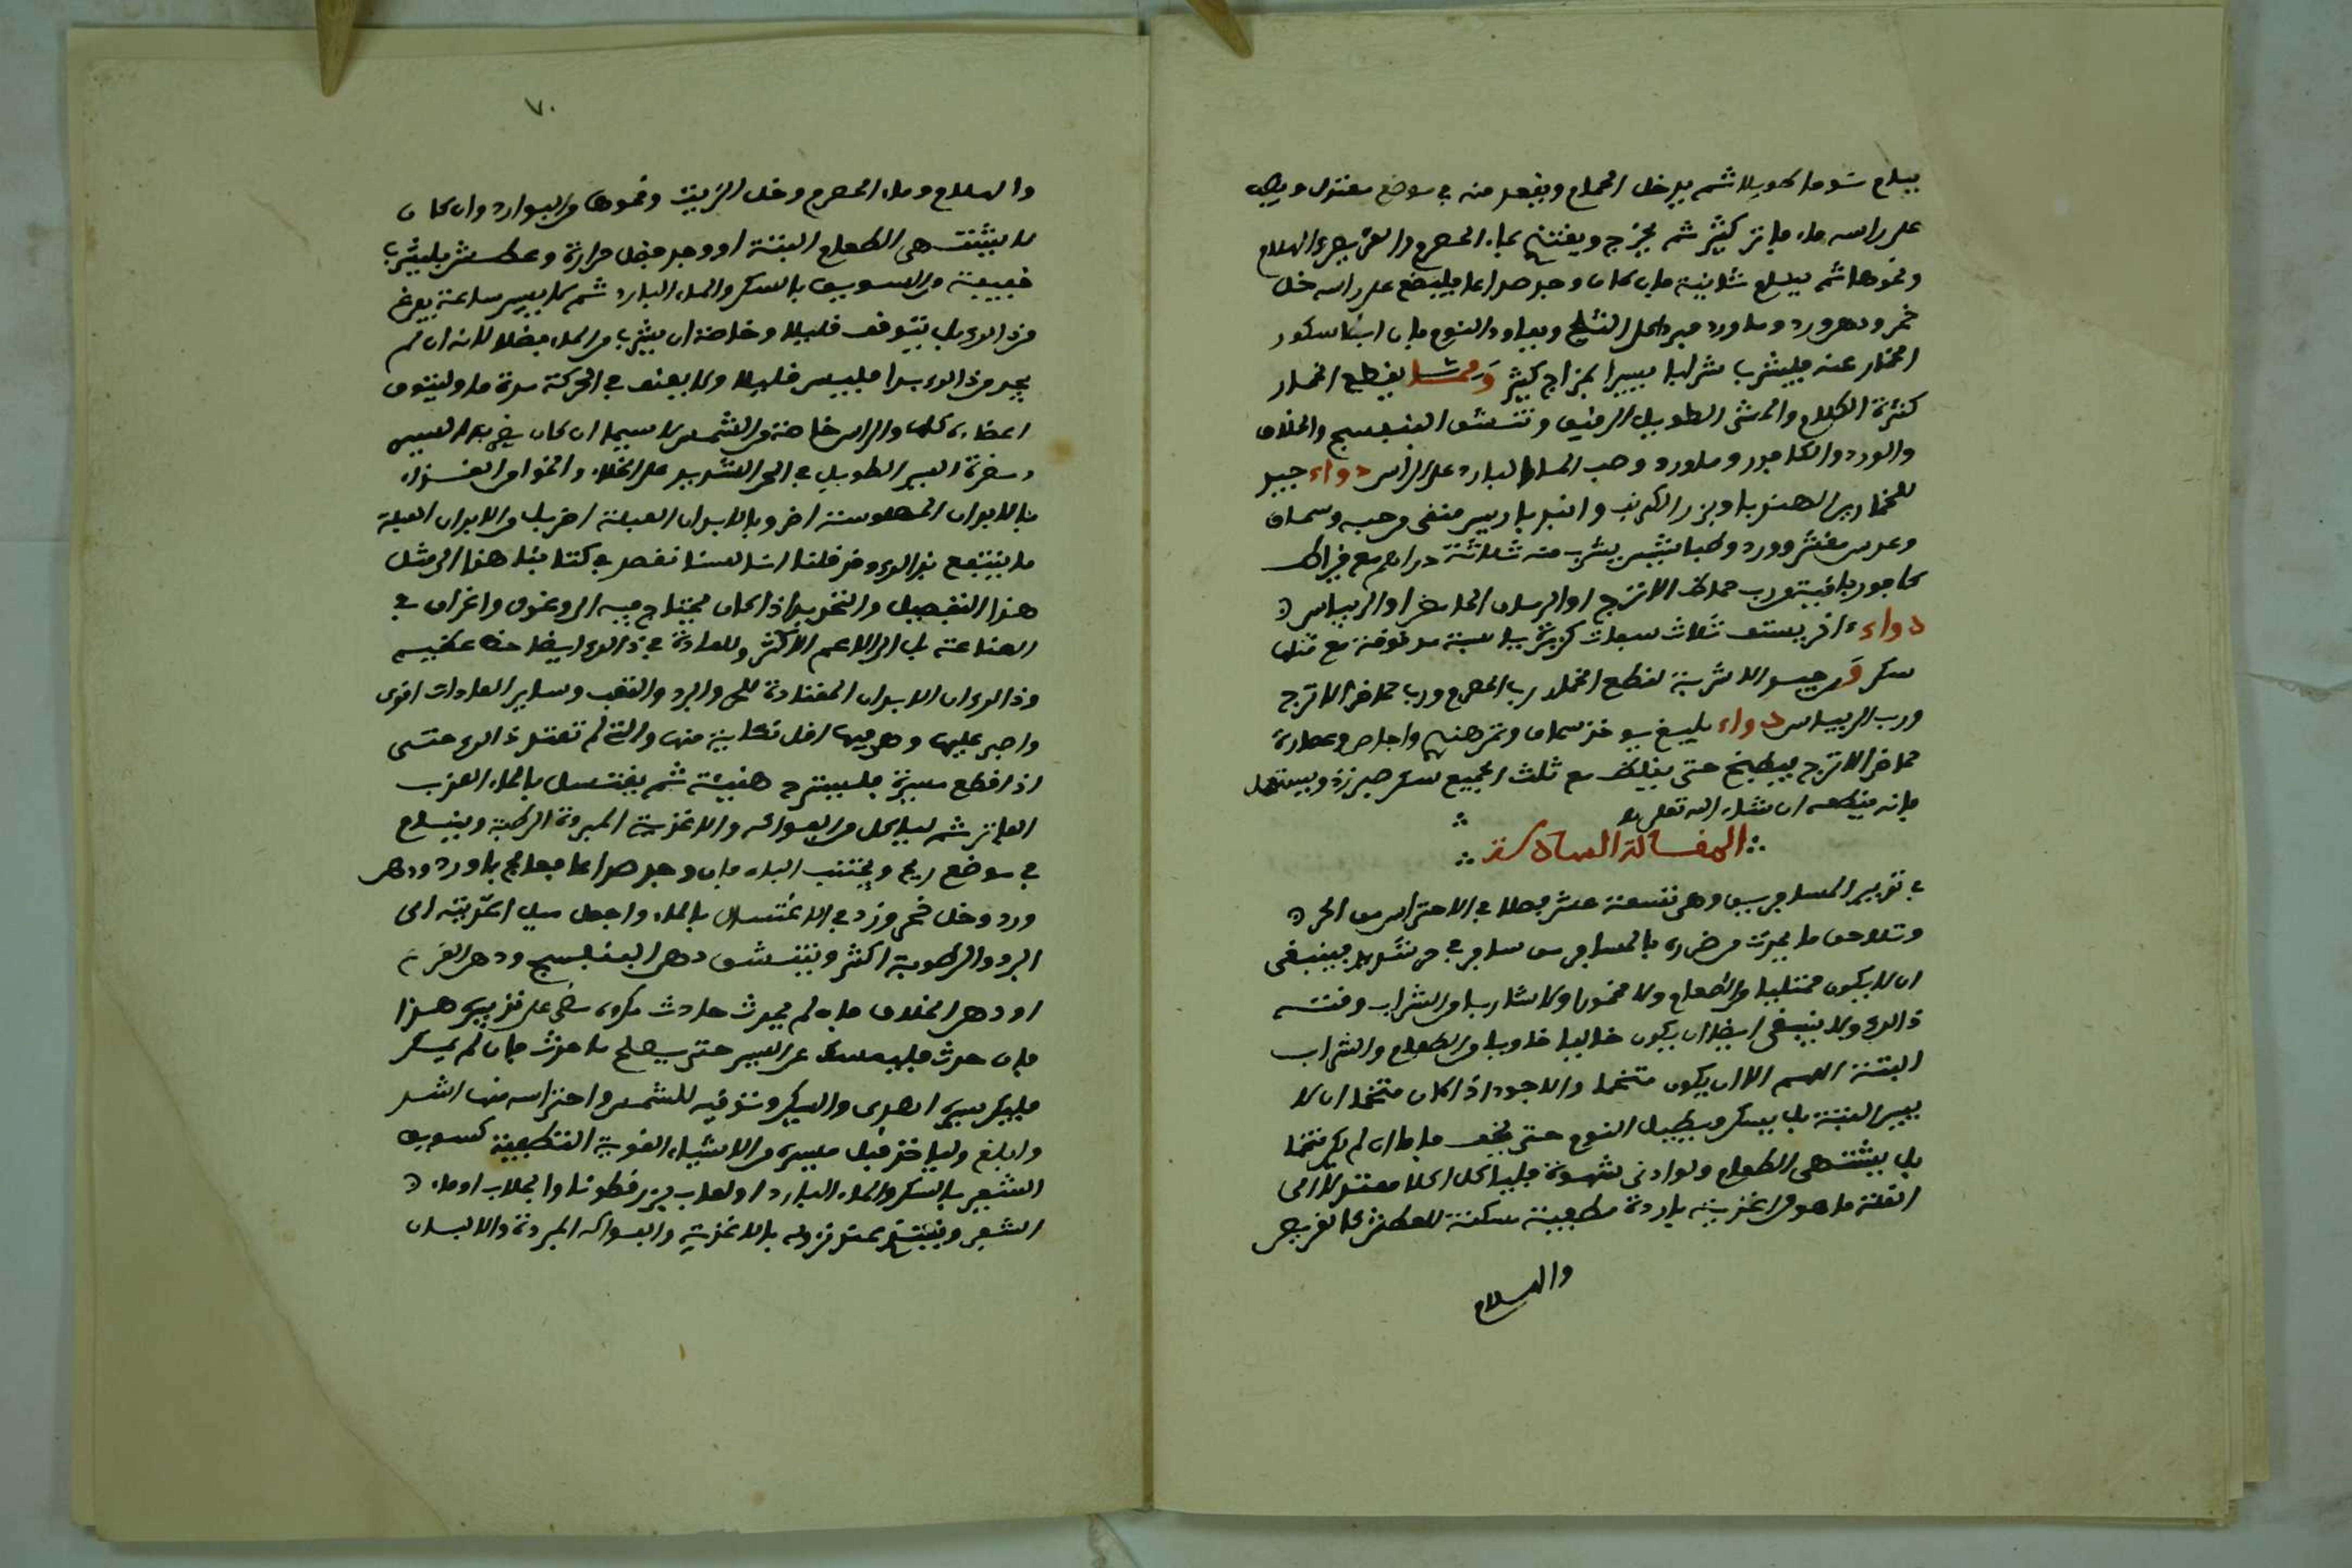 فينام نوما طويلا ثم يدخل الحمام ويقعد منه في موضع معتدل ويصب
على راسه ماء فاتر كثير ثم يخرج ويغتذي بماء الحصرم والقريص والهلام
ونحوها ثم ينام ثانية فان كان وجد صداعا فليضع على راسه خل
خمر ودهن ورد وما ورد مبرد على الثلج ويعاود النوم فان انتا سكور
الخمار عنه فليشرب شرابا يسيرا بمزاج كثير ومما يقطع الخمار
كثرة الكلام والمشي الطويل الرفيق وتنشق البنفسج والخلاف
والورد والكافور وماورد وصب الماء البارد على الراس دواء جيد
للخمار بزر الهندبا وبزر الكرنب وانبر باريس منقى من حبه وسماق
وعدس مقشر وورد وطباشير يشرب منه ثلاثة دراهم مع قيراط
كافور باوقيتين رب حماض الاترج او الرمان الحامض او الريباس
دواء ءاخر يستف ثلاث سفات كزبرة يابسة مدقوقة مع مثلها
سكر ومن جيد الاشربة لقطع الخمار رب الحصرم ورب حماض الاترج
ورب الريباس دواء بليغ يوخذ سماق وتمر هندي واجاص وعصارة
حماض الاترج فيطبخ حتى يغلظ مع ثلث الجميع سكر طبرزد ويستعمل
فانه يقطعه ان شاء الله تعلى
المقالة السادسة
في تدبير المسافرين وهي تسعة عشر فصلا في الاحتراس من الحر
وتلاحق ما يحدث من ضرره بالمسافر من سافر في حر شديد فينبغي
ان لا يكون ممتليا من الطعام ولا مخمورا ولا شاربا من الشراب وقته
ذالك ولا ينبغي ايضا ان يكون خاليا خاويا من الطعام والشراب
البتة اللهم الا ان يكون متخما والاجود اذا كان متخما ان لا
يسير البتة بل يسكن ويطيل النوم حتى يخف فاما ان لم يكن متخما
بل يشتهي الطعام ولو ادنى شهوة فلياكل اكلا معتدلا الى
القلة ما هو من اغذية باردة مطفية مسكنة للعطش كالقريص
والهلام
٧٠
والهلام وماء الحصرم وخل الزيت ونحوها من البوارد وان كان
لا يشتهي الطعام البتة او وجد فضل حرارة وعطش فليشرب
قبيعة من السويق بالسكر والماء البارد ثم لا يسير ساعة يفرغ
من ذالك بل يتوقف قليلا وخاصة ان يشرب من الماء فضلا لانه ان لم
يجد من ذالك بدا فليسر قليلا ولا يعنف في الحركة مدة ما وليتوق
اعضاءه كلها والراس خاصة من الشمس لا سيما ان كان
السير الطويل في الحر الشديد على الخلاء والخوا من الغذاء
بالابدان اخر وبالابدان العبلة اخر بل من الابدان العبلة
ما ينتفع بذالك وقد قلنا انا لسنا نقصد في كتابنا هذا الى مثل
هذا التفصيل والتحديد اذا كان يحتاج فيه الى وغول واغراق في
الصناعة بل الى الاعم الاكثر وللعادة في ذالك ايضا حظ عظيم
وذالك ان الابدان المعتادة للحر والبرد والتعب وساير العادات اقوى
واصبر عليها وهي فيها اقل نكاية منها والتي لم تعتد ذالك حتى
اذا قطع مسيرة فليسترح هنيئة ثم يغتسل بالماء العذب
الفاتر ثم لياكل من الفواكه والاغذية المبردة الرطبة وينام
في موضع ريح ويجتنب الباه فان وجد صداعا فعالج بماورد ودهن
ورد وخل خمر وزد في الاغتسال بالماء واجعل ميل اغذيته الى
البرد والرطوبة اكثر ويتنشق دهن البنفسج ودهن القرع
او دهن الخلاف فانه لم يحدث حادث مكروه مضى على تدبيره هذا
فان حدث فليمسك عن السير حتى يصلح ما حدث فان لم يمسك
فليكن سيره الهوينى والسكير وتوقيه للشمس واحتراسه منها اشد
وابلغ ولياخذ قبل مسيره من الاشياء القوية التطفية كسويق
الشعير بالسكر والماء البارد او لعاب بزر قطونا والجلاب او ماء
الشعير ويغتذي عند نزوله بالاغذية والفواكه المبردة والالبان